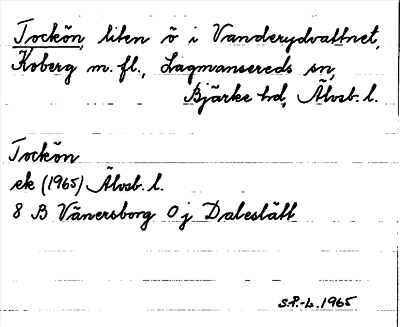 Tockön, liten ö i Vanderydvattnet,
Koberg m.fl., Lagmansereds sn,
Bjärke hd, Älvsb. l.
Tockön
ek (1965) Älvsb. l.
8 B Vänersborg 0 j Daleslätt
S.P.-L. 1965